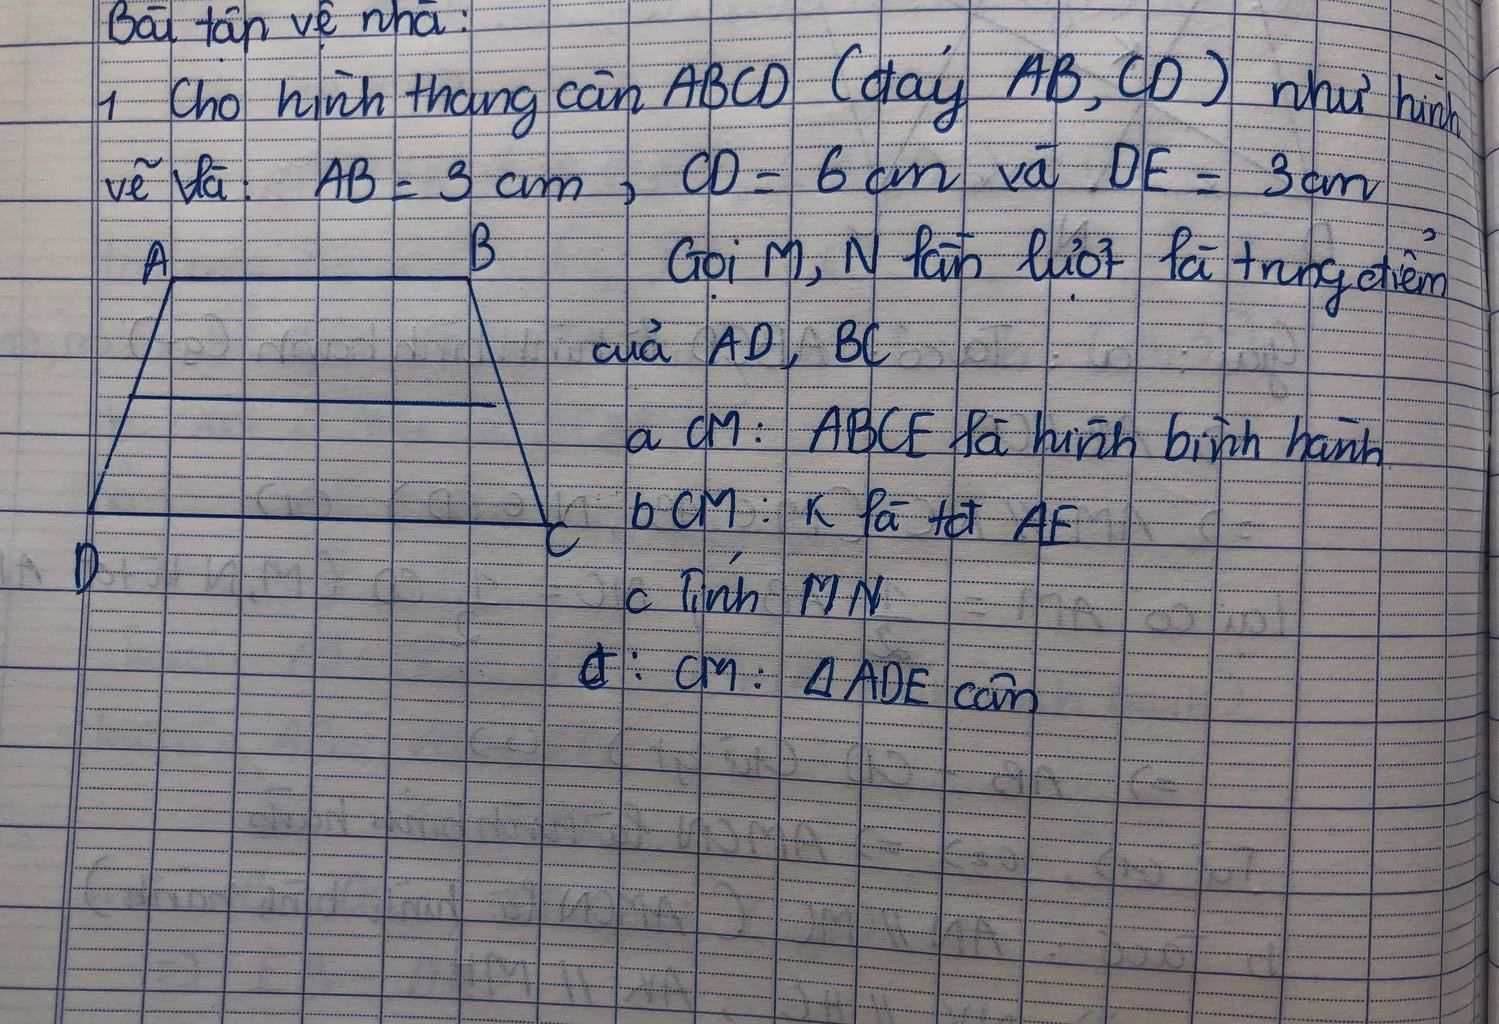 Bài tập về nhà:
1 Cho hình thang cân ABCD (đáy AB, CD) như hình
vẽ và: AB = 3 cm, CD = 6 cm và DE = 3cm
A B
Gọi M, N lần lượt là trung điểm
của AD, BC
a CM: ABCE là hình bình hành
b CM: K là tđ AE
C
D
c Tính MN
d: CM: Δ ADE cân